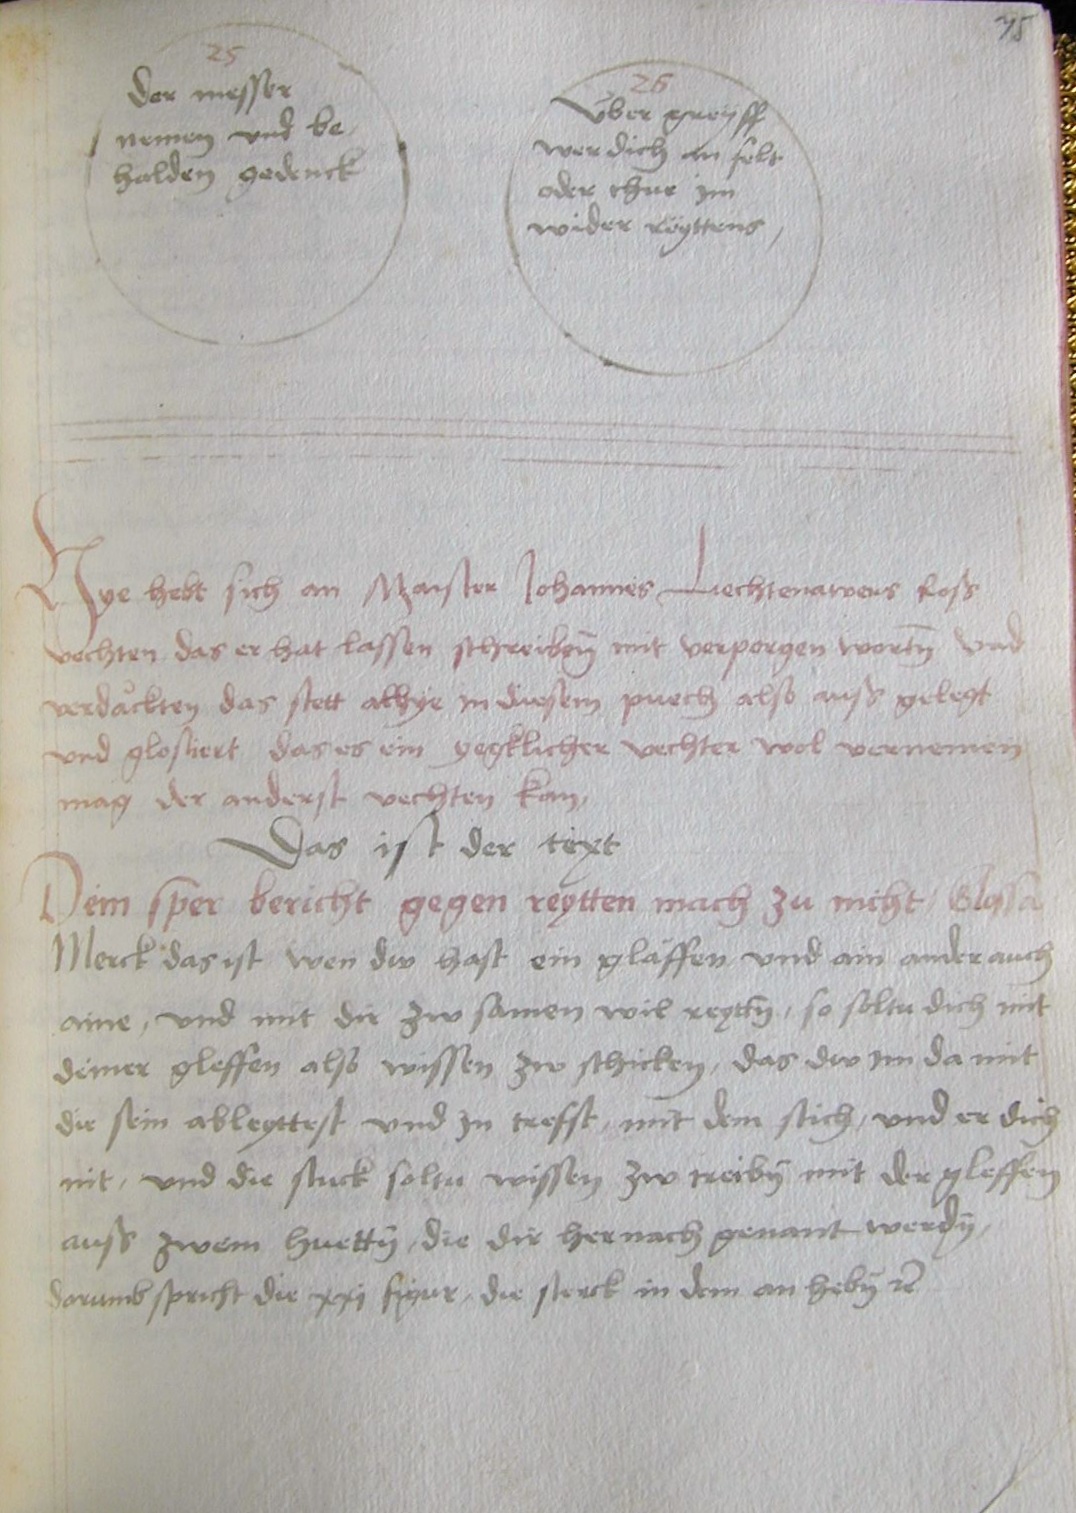 75
25
Der messer
nemen vnd be
halden gedenck
26
Vber greyff
wer dich an felt
oder thue im
wider reyttens
Hye hebt sich an Maister Johannes Liechtenawers Ross
vechten das er hat lassen schreibn̄ mit verporgen wortn̄ vnd
verdackten das stett alhye in diesem puech also auss gelegt
vnd glosiert das es ein yegklicher vechter wol vernemen
mag der anderst vechten kan,
Das ist der text
Dein sper bericht gegen reytten mach zu nicht / Glosa
Merck das ist wen dw hast ein gläffen vnd ain ander auch
aine, vnd mit dir zw samen wil reyttn̄, so soltu dich mit
deiner gleffen also wissen zw schicken, das dw im da mit
die sein ableyttest vnd in treffst, mit dem stich, vnd er dich
nit, vnd die stuck soltu wissen zw treibn̄ mit der gleffen
auss zwein huettn̄, die dir hernach genant werdn̄,
darumb spricht die xxj figur, die sterck in dem an hebn̄ rc̄